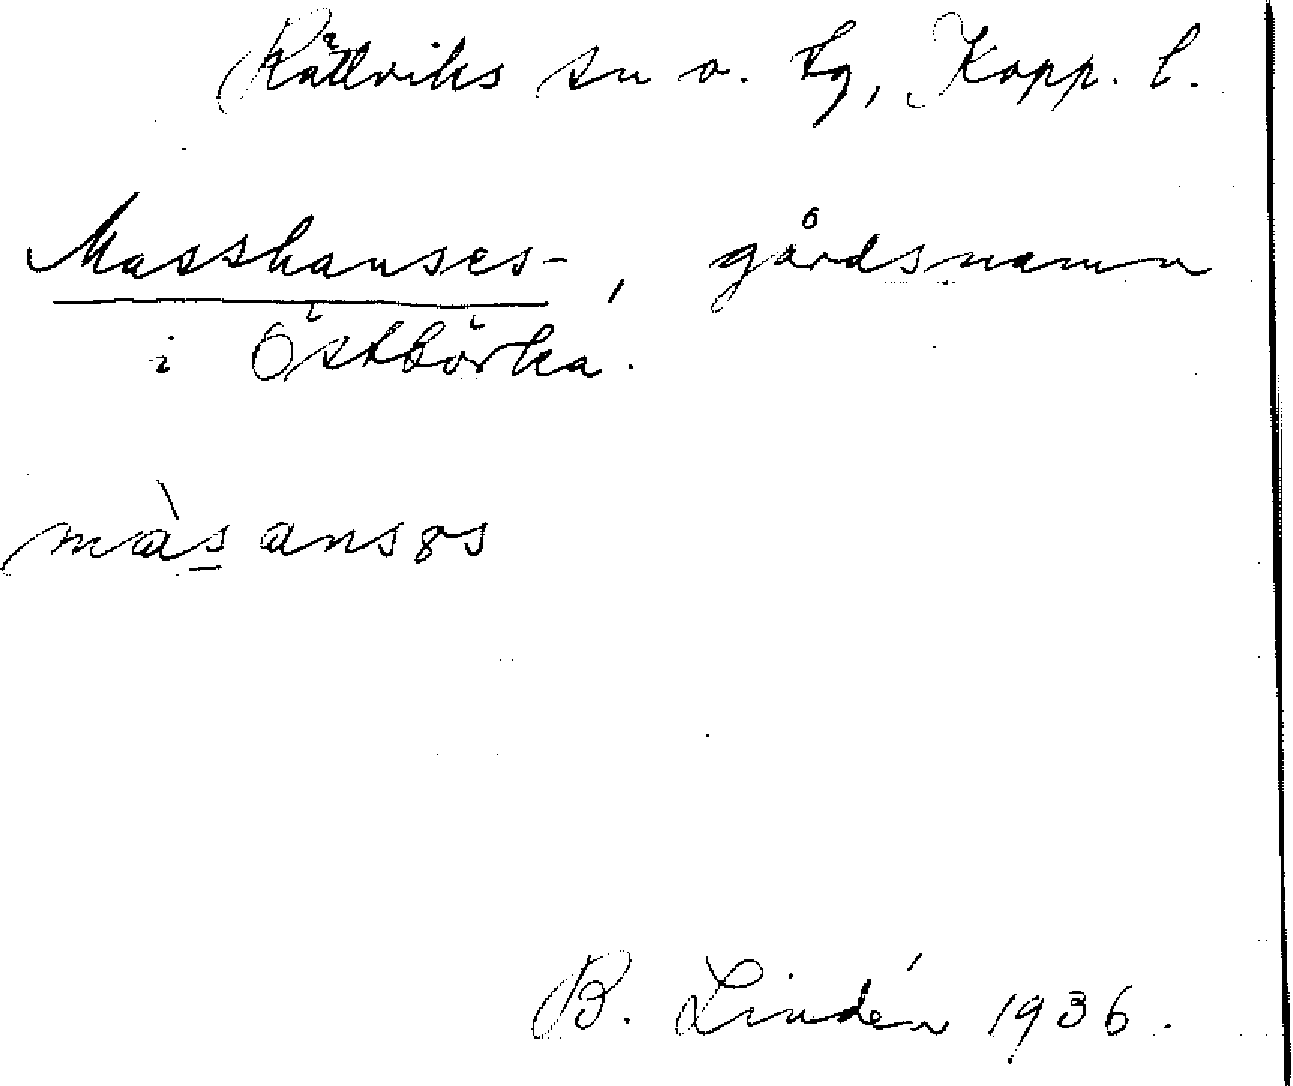 Rättviks sn o. tg, Kopp. l.
Masshanses-, gårdsnamn
i Östbörka.
màs ansɤs
B. Lindén 1936.